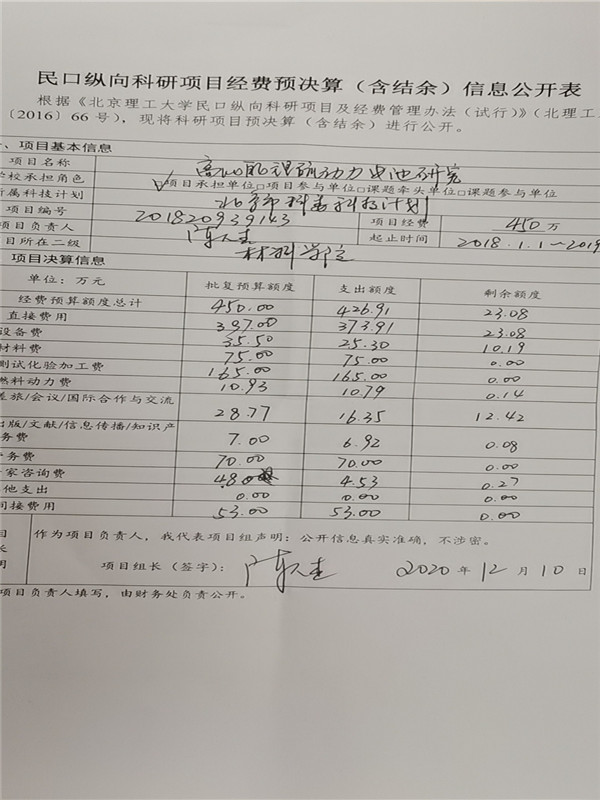 民口纵向科研项目经费预决算（含结余）信息公开表
根据《北京理工大学民口纵向科研项目及经费管理办法（试行）》（北理工
〔2016〕66号），现将科研项目预决算（含结余）进行公开。
、项目基本信息
项目名称 高 锂硫动力电池研究
学校承担角色 ☑项目承担单位□项目参与单位□课题牵头单位□课题参与单位
所属科技计划 北京市科委科技计划
项目编号 201820939143 项目经费 450万
项目负责人 陈人杰 起止时间 2018.1.1~2019
目所在二级 材料学院
项目决算信息
单位：万元 批复预算额度 支出额度 剩余额度
经费预算额度总计 450.00 426.91 23.08
直接费用 397.00 373.91 23.08
设备费 35.50 25.30 10.19
材料费 75.00 75.00 0.00
测试化验加工费 165.00 165.00 0.00
燃料动力费 10.93 10.79 0.14
差旅/会议/国际合作与交流 28.77 16.35 12.42
出版/文献/信息传播/知识产
务费 7.00 6.92 0.08
务费 70.00 70.00 0.00
家咨询费 4.80 4.53 0.27
他支出 0.00 0.00 0.00
间接费用 53.00 53.00 0.00
作为项目负责人，我代表项目组声明：公开信息真实准确，不涉密。
项目组长（签字）： 陈人杰 2020年12月10日
项目负责人填写，由财务处负责公开。